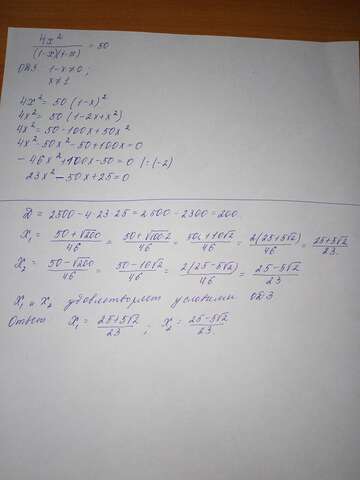 4x² / (1-x)(1-x) = 50
ОДЗ 1-x≠0;
x≠1
4x² = 50 (1-x)²
4x² = 50 (1-2x+x²)
4x² = 50-100x+50x²
4x²-50x²-50+100x=0
-46x²+100x-50=0 |:(-2)
23x²-50x+25=0
D = 2500-4·23·25=2500-2300=200.
x₁ = 50+√200 / 46 = 50+√100·2 / 46 = 50+10√2 / 46 = 2(25+5√2) / 46 = 25+5√2 / 23.
x₂ = 50-√200 / 46 = 50-10√2 / 46 = 2(25-5√2) / 46 = 25-5√2 / 23
x₁ и x₂ удовлетворяет условиям ОДЗ
Ответ: x₁ = 25+5√2 / 23 ; x₂ = 25-5√2 / 23.